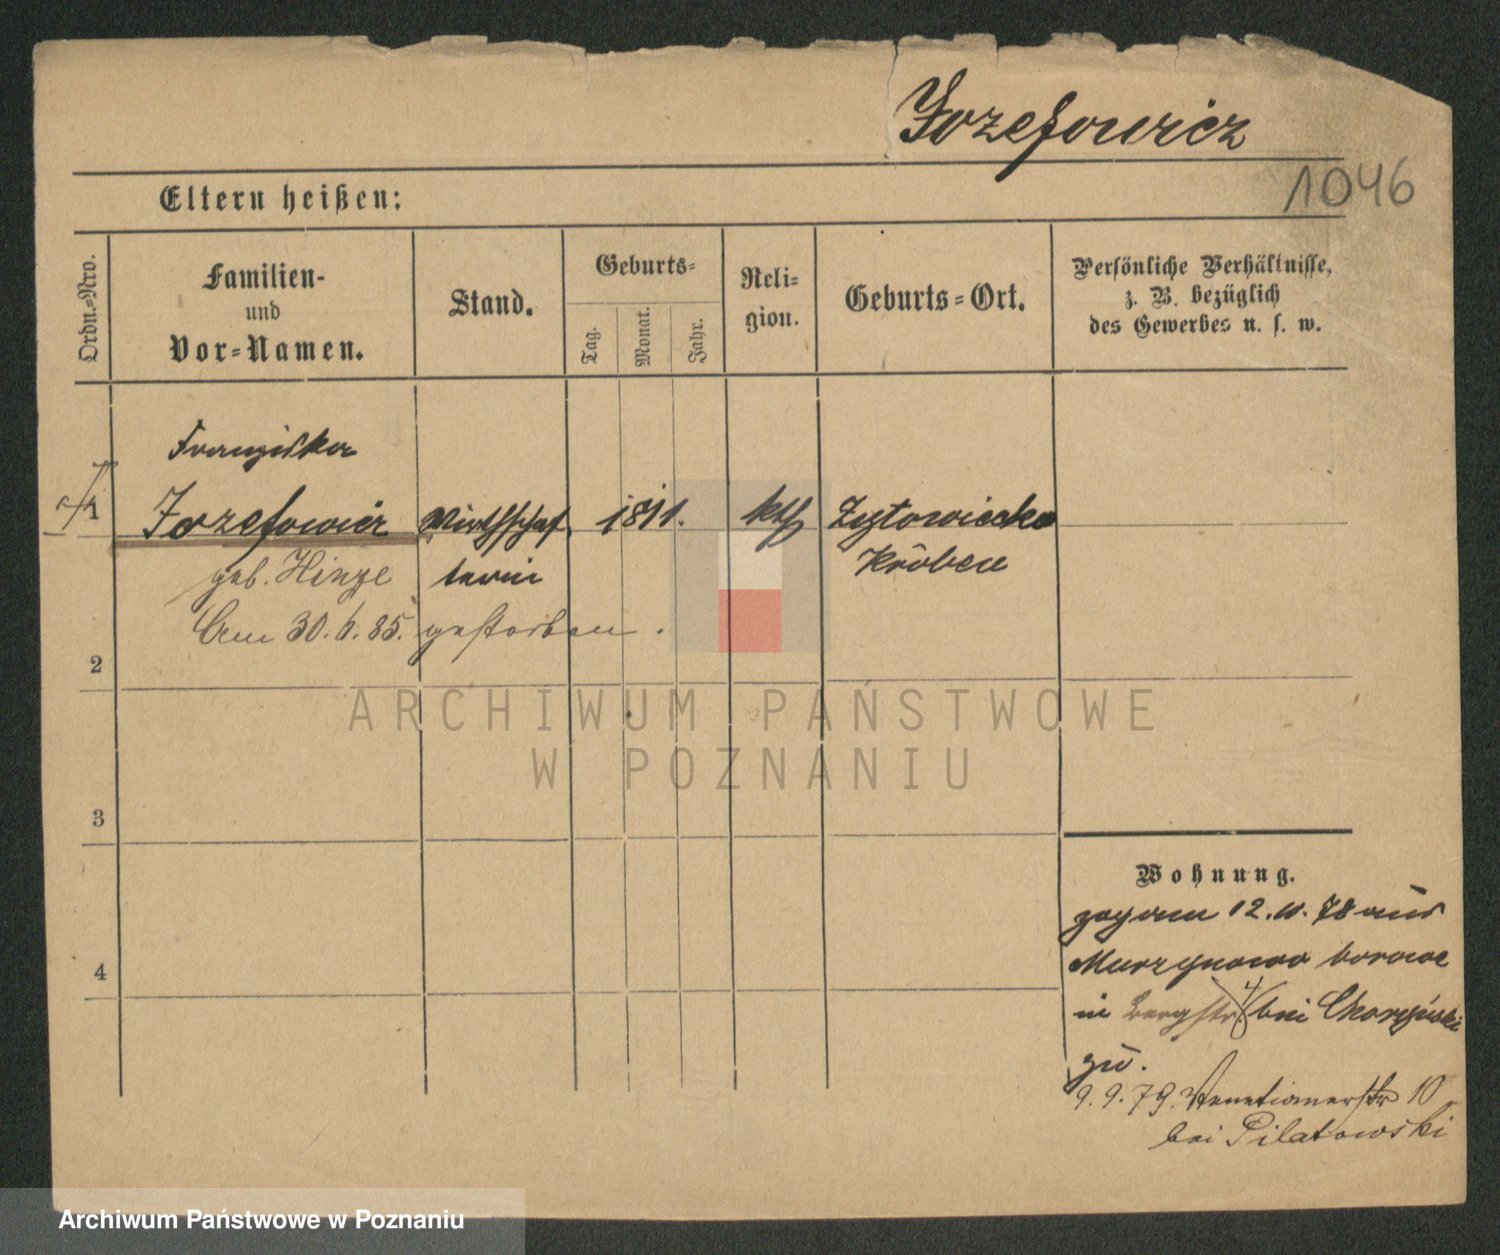 Jozefowicz
1046
Eltern heißen:
Ordn.=Nro.
Familien-
und
Vor=Namen.
Stand.
Geburts=
Tag.
Monat.
Jahr.
Reli-
gion.
Geburts=Ort.
Persönliche Verhältnisse,
z. B. bezüglich
des Gewerbes u. s. w.
Franziska
1 Jozefowicz Wirthschaf 1811. kth Zytowiecko
geb. Hinze terin Kröben
Am 30.6.85. gestorben.
2
3
4
ARCHIWUM PAŃSTWOWE
W POZNANIU
Wohnung.
zogen 12.11.78 aus
Murzynowo borowe
in Bergstr. 4 bei Chorzyński
zu.
9.9.79. Venetianerstr 10
bei Pilatowski
Archiwum Państwowe w Poznaniu